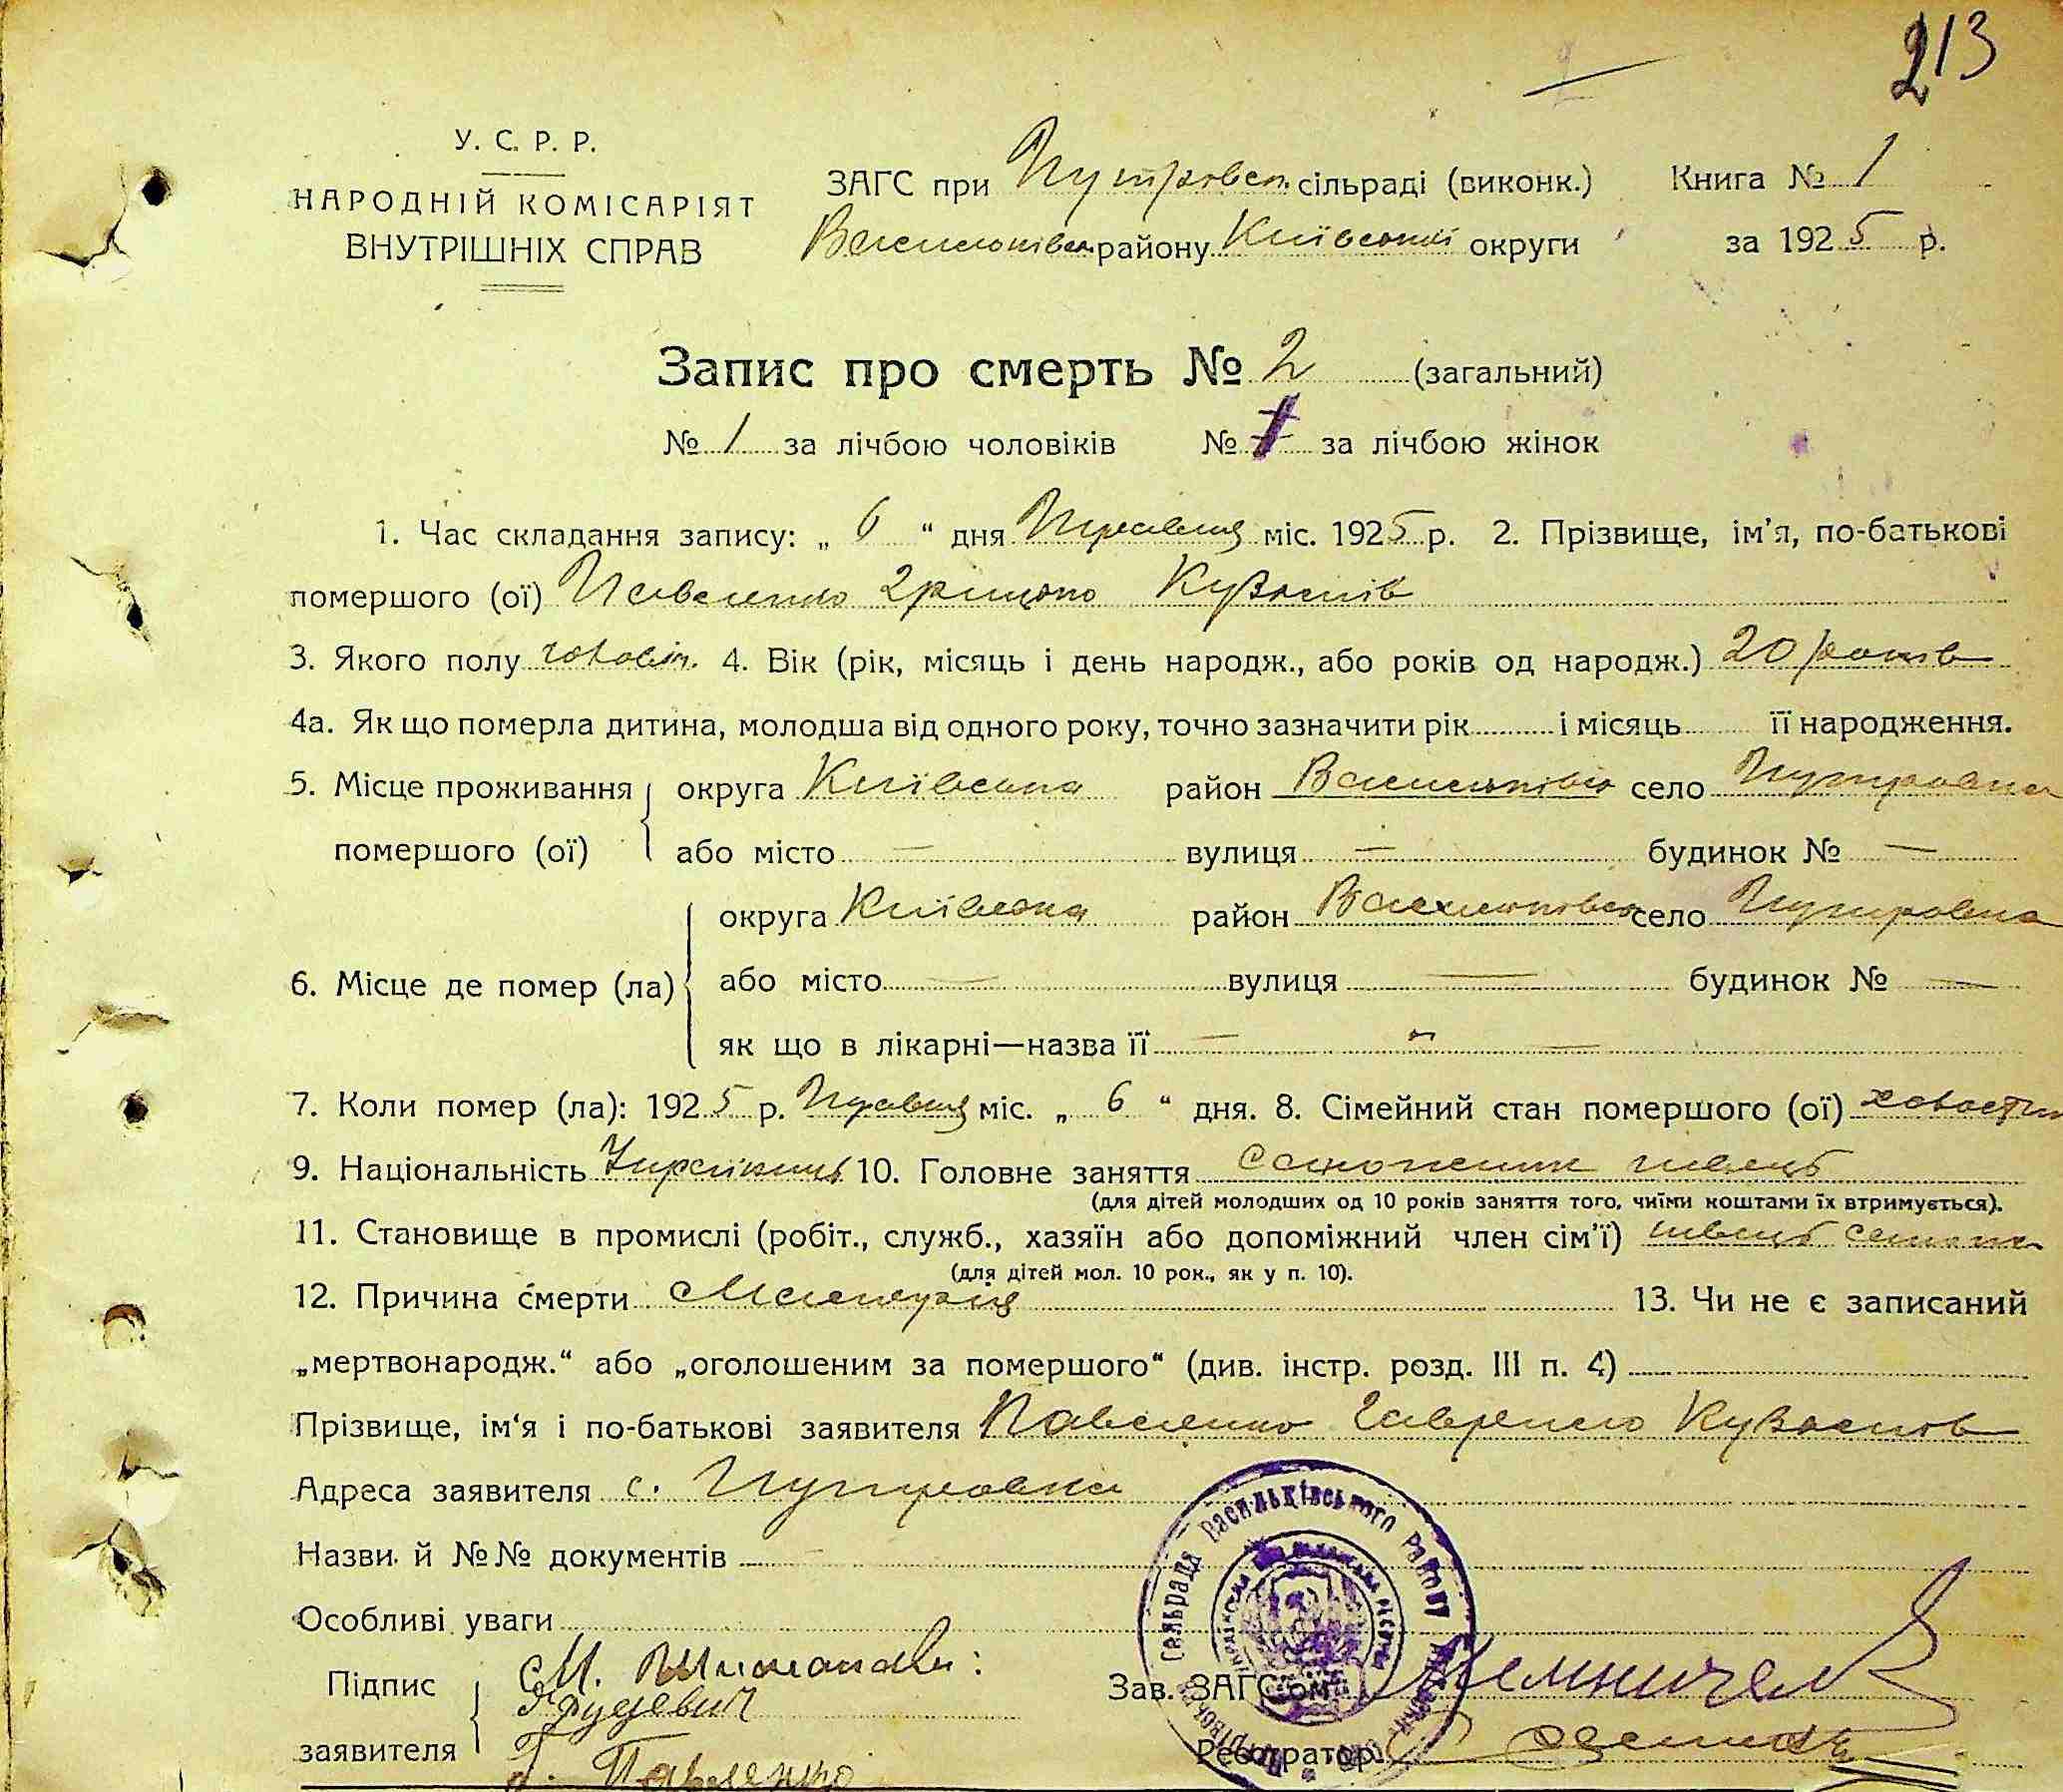 213
У. С. Р. Р.
НАРОДНІЙ КОМІСАРІЯТ
ВНУТРІШНІХ СПРАВ
ЗАГС при Путровск. сільраді (виконк.) Книга № 1
Васильківськ району Київської округи за 1925 р.
Запис про смерть № 2 (загальний)
№ 1 за лічбою чоловіків № за лічбою жінок
1. Час складання запису: „ 6 “ дня Травня міс. 1925 р. 2. Прізвище, ім'я, по-батькові
помершого (ої) Павленко Грицько Кузьмів
3. Якого полу чоловіч. 4. Вік (рік, місяць і день народж., або років од народж.) 20 років
4а. Як що померла дитина, молодша від одного року, точно зазначити рік і місяць її народження.
5. Місце проживання округа Київська район Васильківськ село Путровка
помершого (ої) або місто — вулиця — будинок № —
округа Київська район Васильківськ село Путровка
6. Місце де помер (ла) або місто — вулиця — будинок № —
як що в лікарні—назва її — „ —
7. Коли помер (ла): 1925 р. Травня міс. „ 6 “ дня. 8. Сімейний стан помершого (ої)
9. Національність Українець 10. Головне заняття швець
(для дітей молодших од 10 років заняття того, чиїми коштами їх втримується).
11. Становище в промислі (робіт., служб., хазяїн або допоміжний член сім'ї) швець
(для дітей мол. 10 рок., як у п. 10).
12. Причина смерти 13. Чи не є записаний
„мертвонародж.“ або „оголошеним за помершого“ (див. інстр. розд. III п. 4)
Прізвище, ім'я і по-батькові заявителя Павленко Гаврило Кузьмов
Адреса заявителя с. Путровка
Назви й №№ документів
Особливі уваги
Підпис
заявителя
Г. Павленко
Зав. ЗАГС'ом
Реєстратор
сельрада Васильківського району